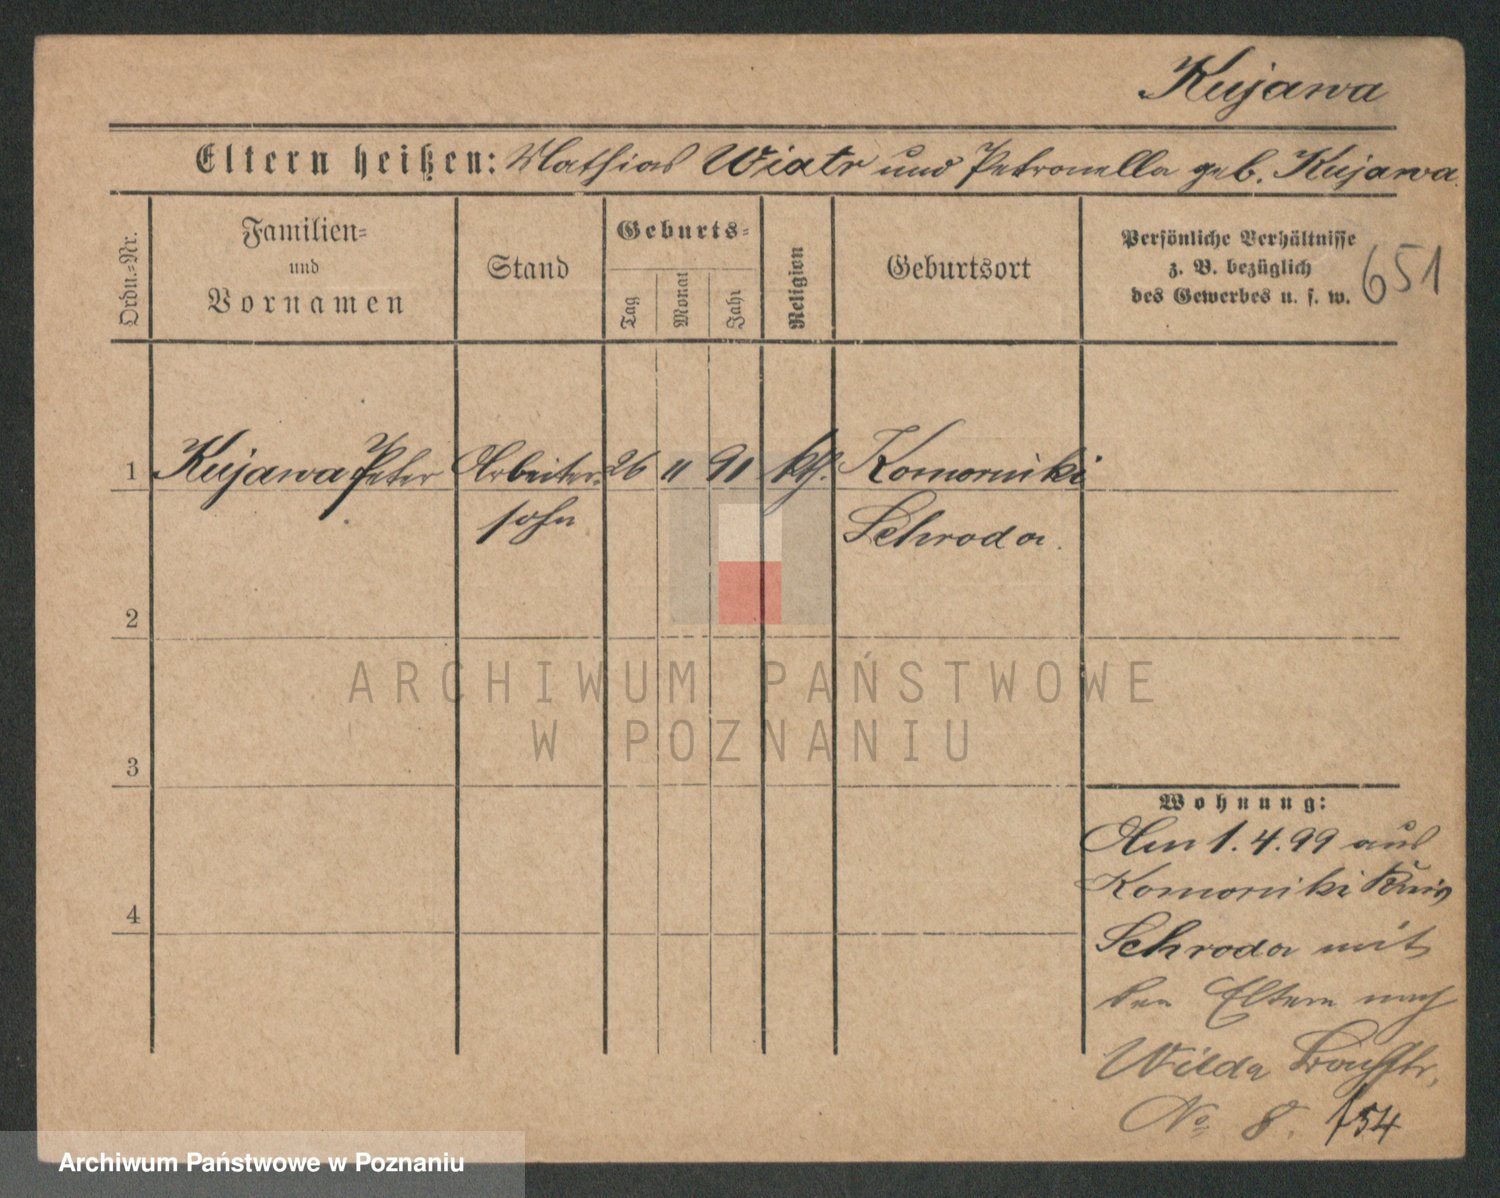 Kujawa
Eltern heißen: Mathias Wiatr und Petronella geb. Kujawa.
Ordn.-Nr.
Familien-
und
Vornamen
Stand
Geburts-
Tag
Monat
Jahr
Religion
Geburtsort
Persönliche Verhältnisse
z. B. bezüglich
des Gewerbes u. s. w.
651
1 Kujawa Peter Arbeiter- 26 11 91 kth. Komorniki
sohn Schroda.
2
ARCHIWUM PAŃSTWOWE
W POZNANIU
3
Wohnung:
Am 1. 4. 99 aus
Komorniki Kreis
4
Schroda mit
den Eltern nach
Wilda
No 8. 154
Archiwum Państwowe w Poznaniu